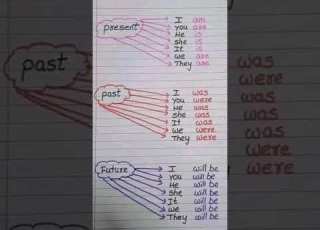 present
I am
You are
He is
She is
It is
We are
They are
past
I was
You were
He was
She was
It was
We were
They were
Future
I will be
You will be
He will be
She will be
It will be
We will be
They will be
past
was
were
was
was
was
were
were